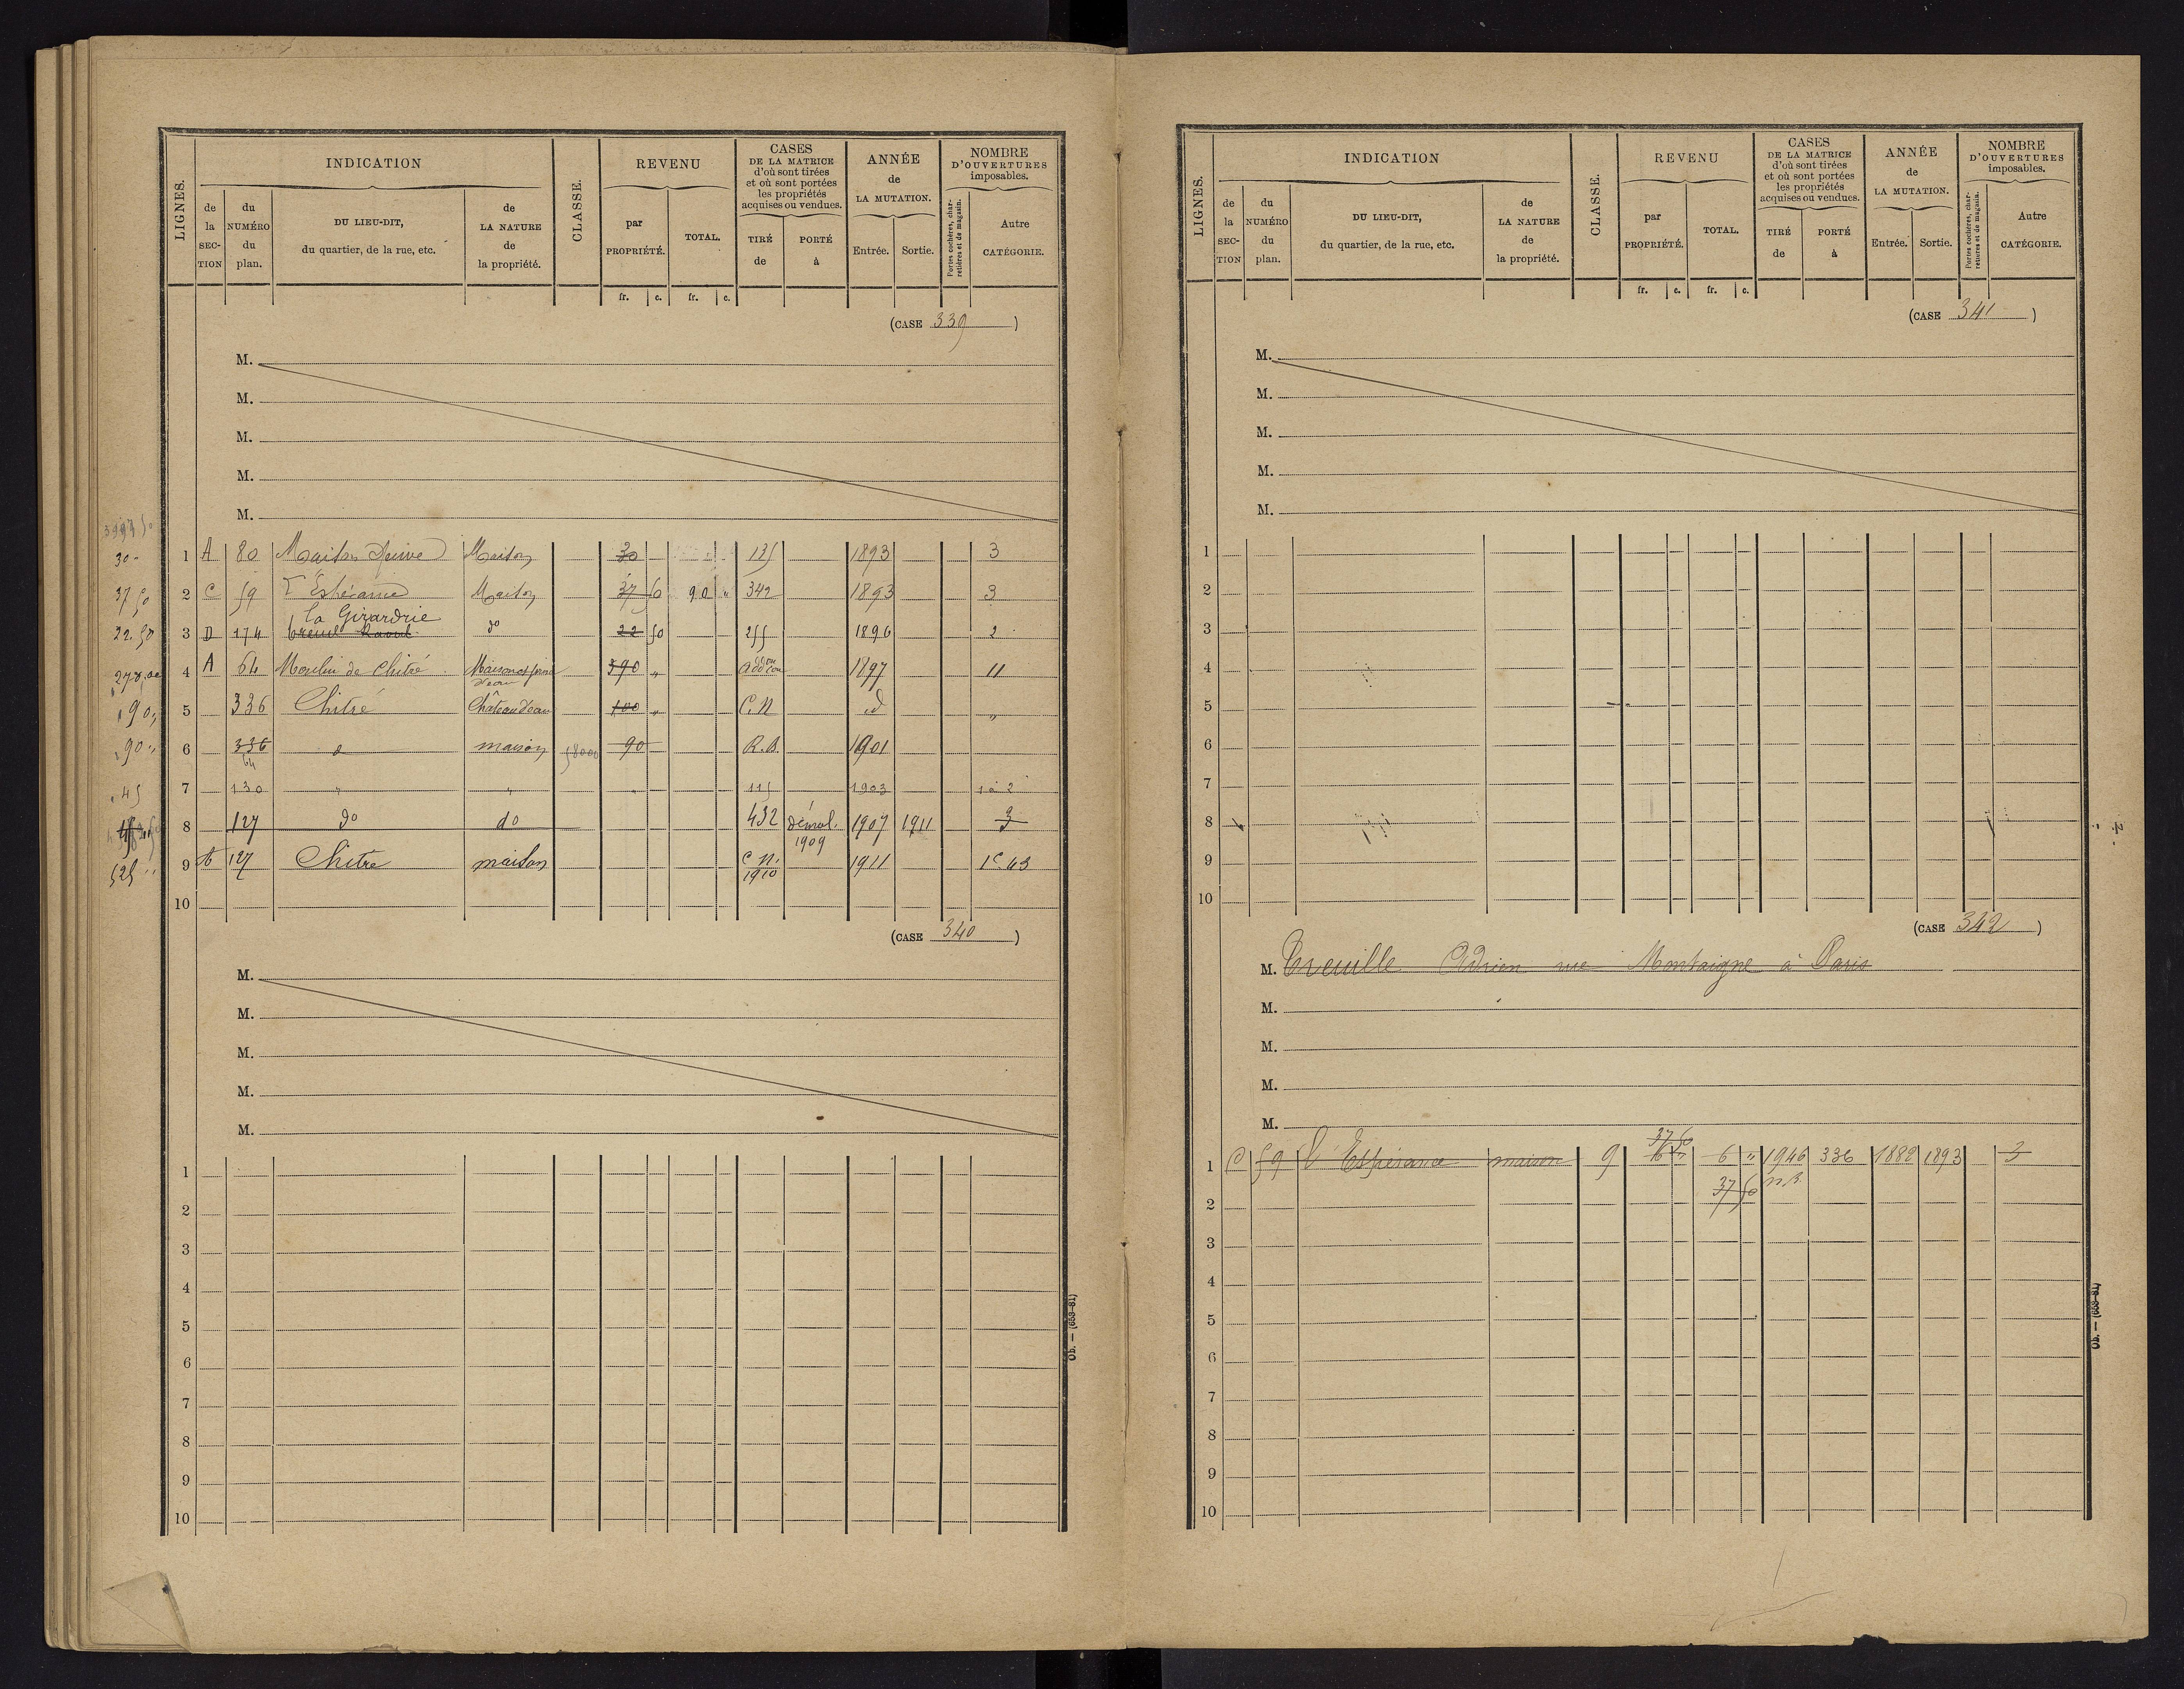 LIGNES.
INDICATION
CLASSE.
REVENU
CASES
DE LA MATRICE
d'où sont tirées
et où sont portées
les propriétés
acquises ou vendues.
ANNÉE
de
LA MUTATION.
NOMBRE
D'OUVERTURES
imposables.
de
la
SEC-
TION
du
NUMÉRO
du
plan.
DU LIEU-DIT,
du quartier, de la rue, etc.
de
LA NATURE
de
la propriété.
par
PROPRIÉTÉ.
TOTAL.
TIRÉ
de
PORTÉ
à
Entrée.
Sortie.
Portes cochères, char-
retières et de magasin.
Autre
CATÉGORIE.
fr. c. fr. c.
(CASE 339)
M.
M.
M.
M.
M.
30 - 1 A 80 Maison Maison 30 135 1893 3
37 50 2 C 59 L'Espérance Maison 37 50 90 " 342 1893 3
la Girardrie
22.50 3 D 174 do 22 50 255 1896 2
4 A 64 Moulin de Chitré 390 " addon 1897 11
90 " 5 336 Chitré Château d'eau 100 " C.N d° "
90 " 6 336 d° maison 58000 90 R.B. 1901
64
45 7 130 " " 115 1903 1 à 2
8 127 do do 432 démol. 1907 1911 3
1909
525 " 9 A 127 Chitré maison C.N. 1911 1c 43
1910
10
(CASE 340)
M.
M.
M.
M.
M.
1
2
3
4
5
6
7
8
9
10
Ob. — (653-81)
LIGNES.
INDICATION
CLASSE.
REVENU
CASES
DE LA MATRICE
d'où sont tirées
et où sont portées
les propriétés
acquises ou vendues.
ANNÉE
de
LA MUTATION.
NOMBRE
D'OUVERTURES
imposables.
de
la
SEC-
TION
du
NUMÉRO
du
plan.
DU LIEU-DIT,
du quartier, de la rue, etc.
de
LA NATURE
de
la propriété.
par
PROPRIÉTÉ.
TOTAL.
TIRÉ
de
PORTÉ
à
Entrée.
Sortie.
Portes cochères, char-
retières et de magasin.
Autre
CATÉGORIE.
fr. c. fr. c.
(CASE 341)
M.
M.
M.
M.
M.
1
2
3
4
5
6
7
8
9
10
(CASE 342)
M. Treuille Adrien rue Montaigne à Paris
M.
M.
M.
M.
37 50
1 C 59 L'Espérance maison 9 6 " 6 " 1946 336 1882 1893 3
37 50 n.B.
2
3
4
5
6
7
8
9
10
Ob. — (653-81)